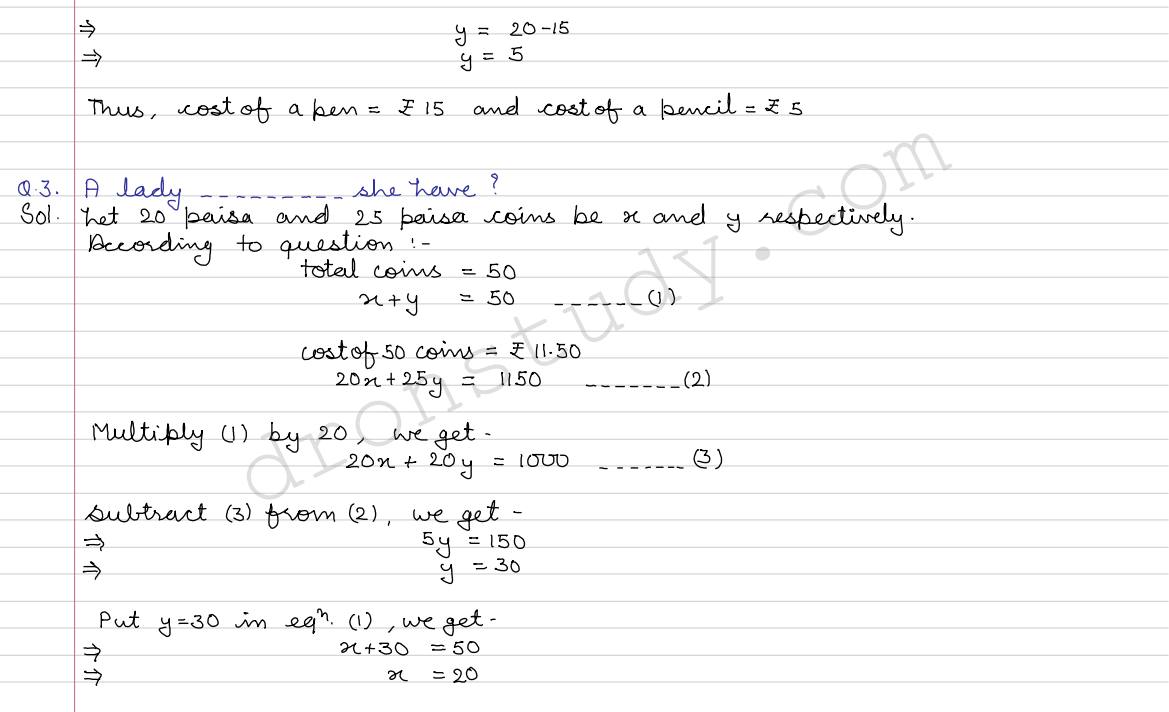 ⇒ y = 20-15
⇒ y = 5
Thus, cost of a pen = ₹ 15 and cost of a pencil = ₹ 5
Q.3. A lady _ _ _ _ _ _ _ _ _ she have?
Sol. Let 20 paisa and 25 paisa coins be x and y respectively.
According to question :-
total coins = 50
x+y = 50 _ _ _ _ _ _ (1)
cost of 50 coins = ₹ 11.50
20x+25y = 1150 _ _ _ _ _ _ _ (2)
Multiply (1) by 20, we get -
20x + 20y = 1000 _ _ _ _ _ _ _ (3)
Subtract (3) from (2), we get -
⇒ 5y = 150
⇒ y = 30
Put y=30 in eqⁿ. (1), we get -
⇒ x+30 = 50
⇒ x = 20
dronstudy.com